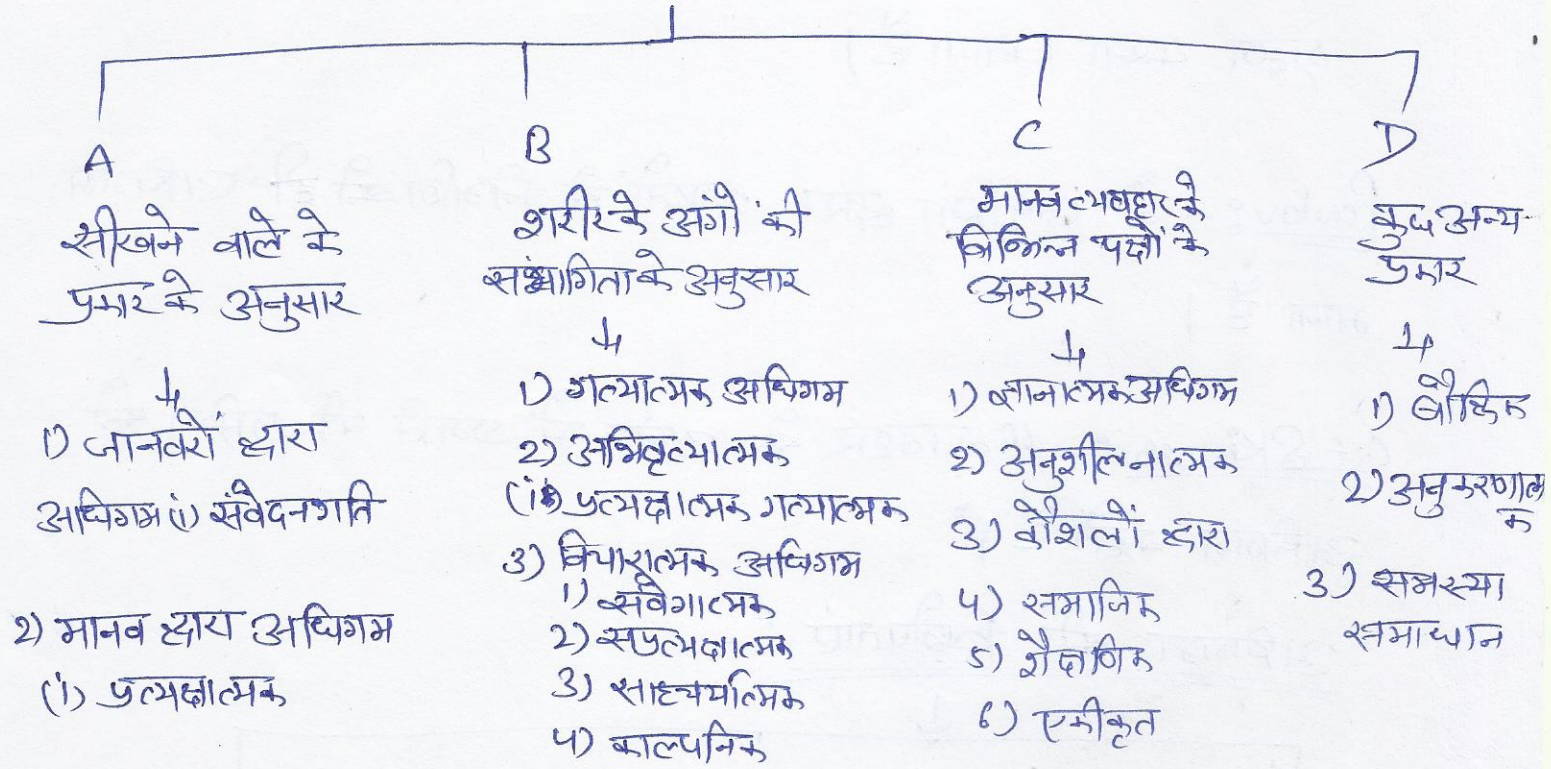 A
सीखने वाले के
प्रकार के अनुसार
1) जानवरों द्वारा
अधिगम (i) संवेदनगति
2) मानव द्वारा अधिगम
(i) प्रत्यक्षात्मक
B
शरीर के अंगों की
सहभागिता के अनुसार
1) गत्यात्मक अधिगम
2) अभिवृत्यात्मक
(i) प्रत्यक्षात्मक गत्यात्मक
3) विचारात्मक अधिगम
1) संवेगात्मक
2) सप्रत्यक्षात्मक
3) साहचर्यात्मक
4) काल्पनिक
C
मानव व्यवहार के
विभिन्न पक्षों के
अनुसार
1) ज्ञानात्मक अधिगम
2) अनुशीलनात्मक
3) कौशलों द्वारा
4) समाजिक
5) शैक्षणिक
6) एकीकृत
D
कुछ अन्य
प्रकार
1) बौद्धिक
2) अनुकरणात्म
क
3) समस्या
समाधान